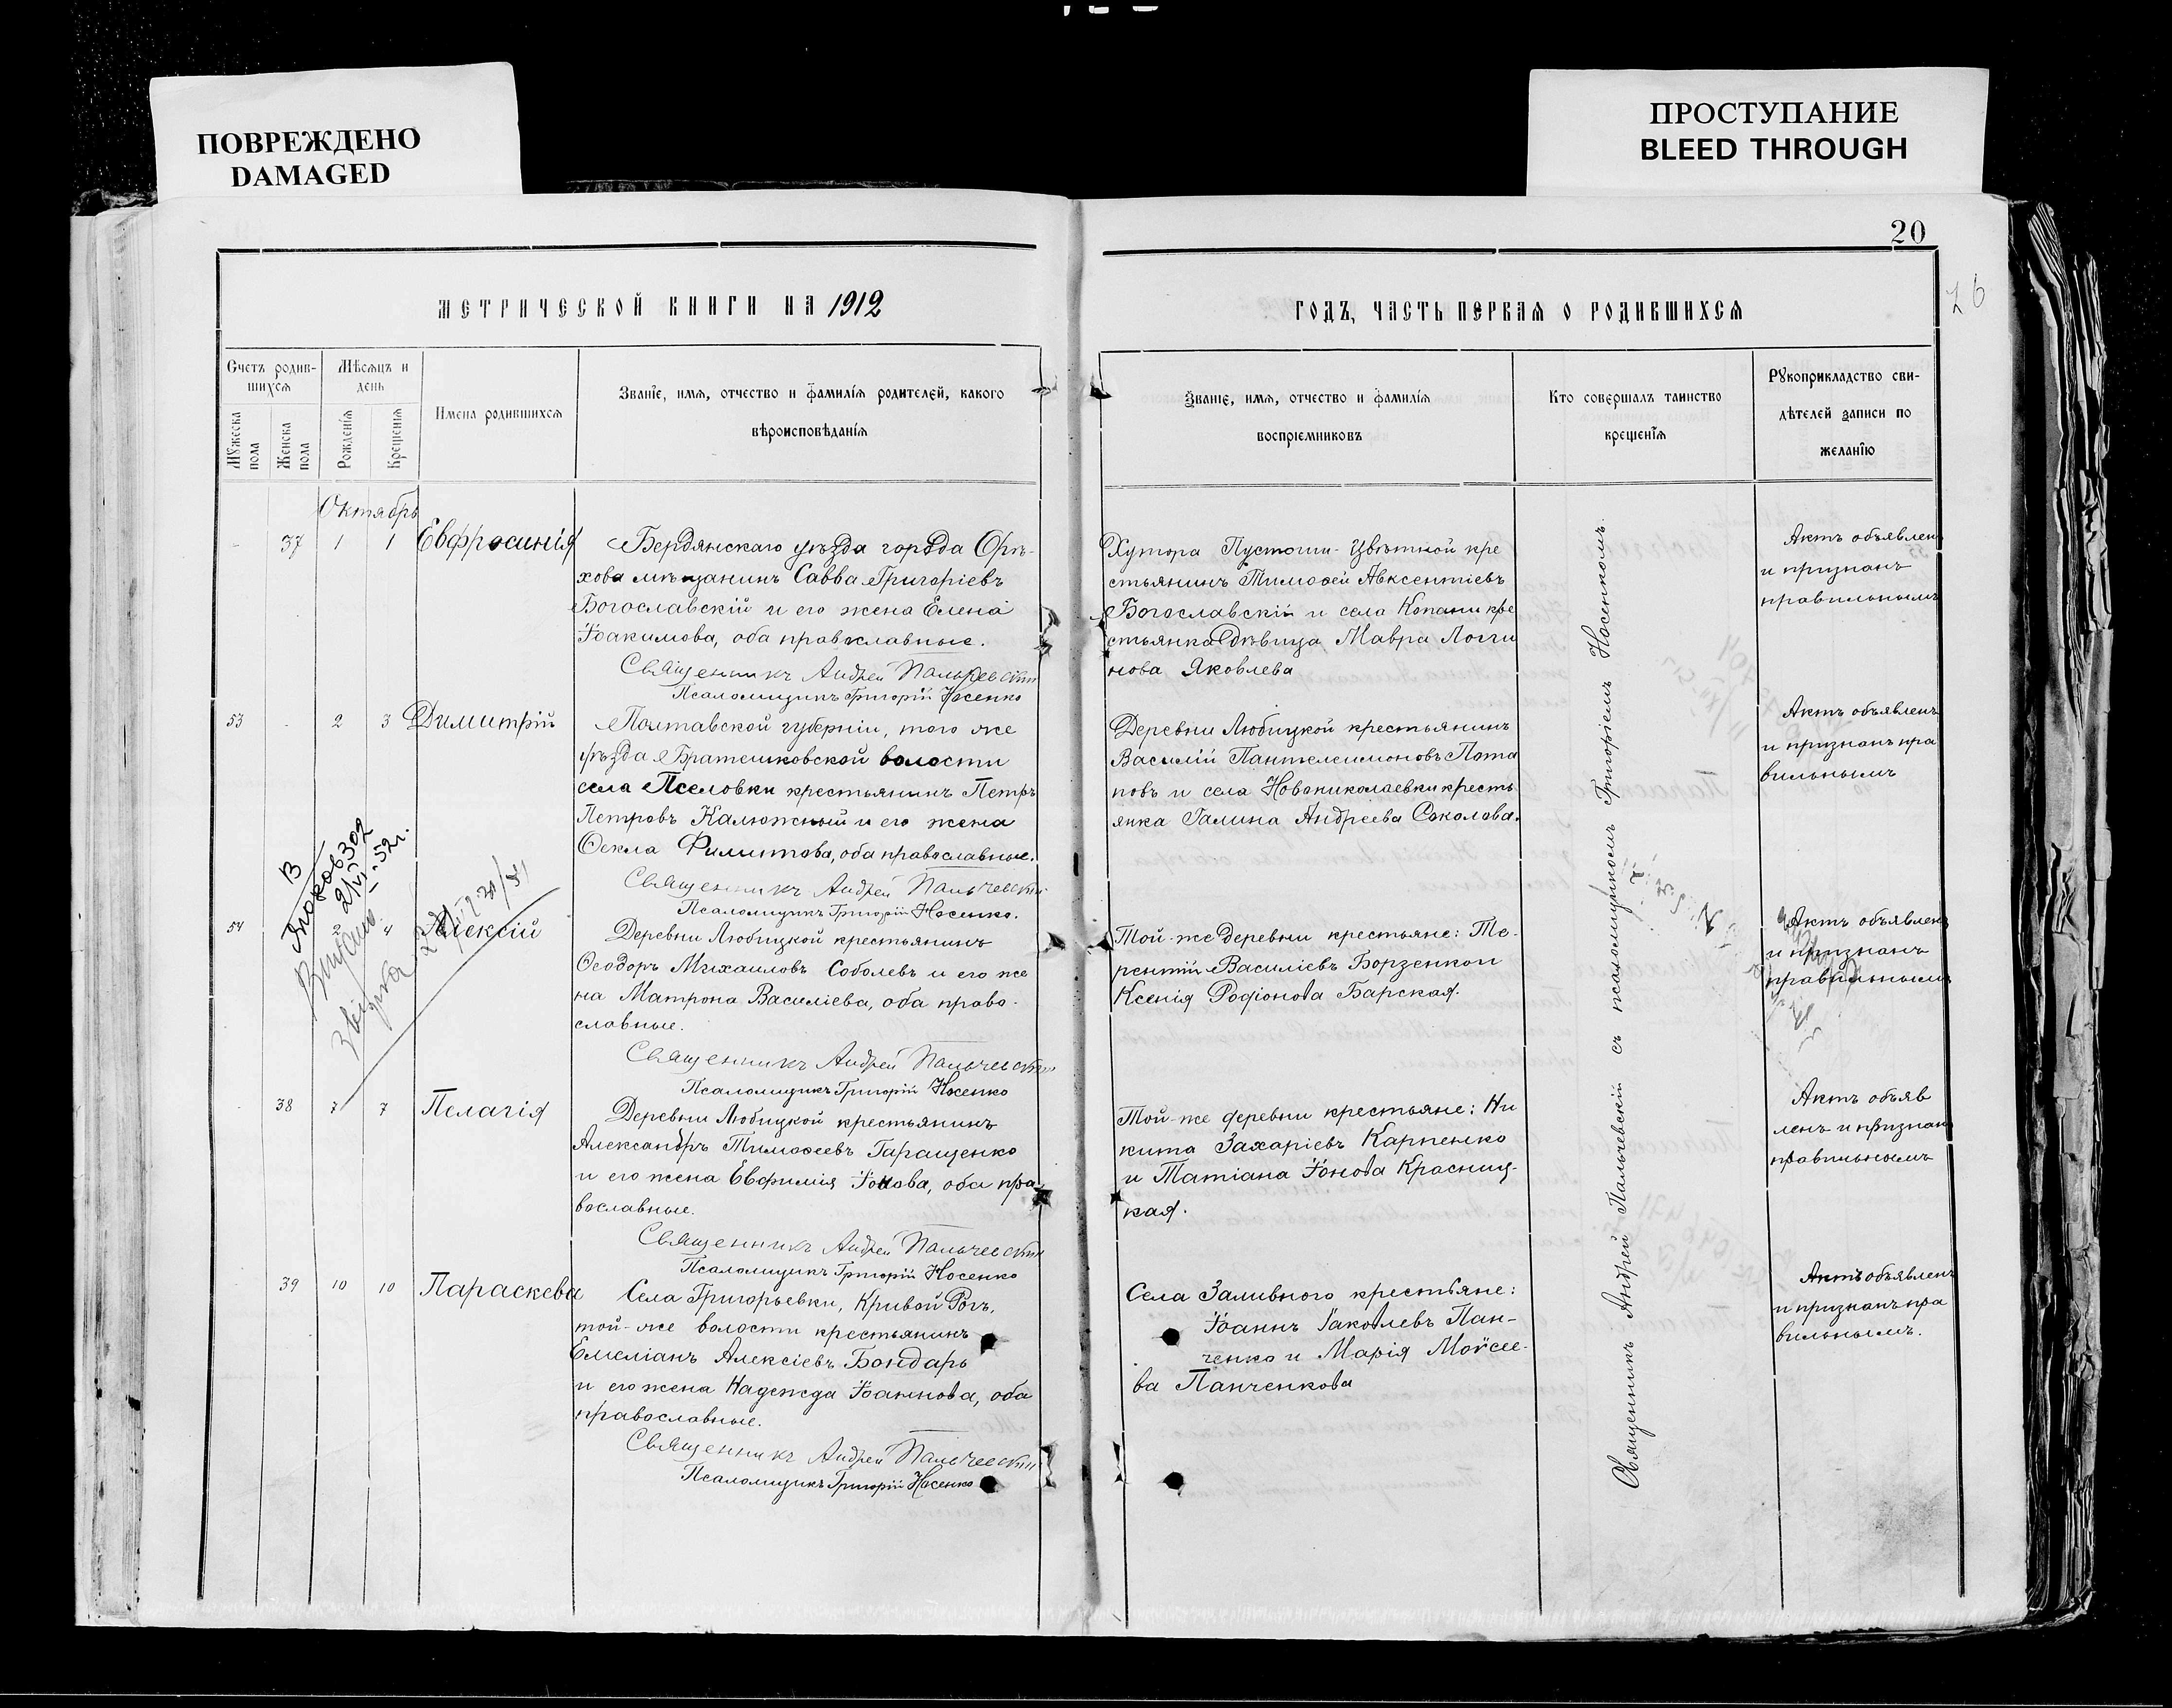 ПОВРЕЖДЕНО
DAMAGED
ПРОСТУПАНИЕ
BLEED THROUGH
20
26
МЕТРИЧЕСКОЙ КНИГИ НА 1912
ГОДЪ, ЧАСТЬ ПЕРВАЯ О РОДИВШИХСЯ
Счетъ родив-
шихся
Мужеска
пола
Женска
пола
Мѣсяцъ и
день
Рожденія
Крещенія
Имена родившихся
Званіе, имя, отчество и фамилія родителей, какого
вѣроисповѣданія
Званіе, имя, отчество и фамилія
воспріемниковъ
Кто совершалъ таинство
крещенія
Рукоприкладство сви-
дѣтелей записи по
желанію
Октябрь
- 37 1 1 Евфросинія
Бердянскаго уѣзда города Орѣ-
хова мѣщанинъ Савва Григоріевъ
Богославскій и его жена Елена
Іоакимова, оба православные.
Священникъ Андрей Пальчевскій
Псаломщикъ Григорій Носенко
Хутора Пустоши-Цвѣтной кре
стьянинъ Тимоѳей Авксентіевъ
Богославскій и села Копани кре
стьянка дѣвица Мавра Логги
нова Яковлева
Актъ объявленъ
и признанъ
правильнымъ
53 - 2 3 Димитрій
Полтавской губерніи, того же
уѣзда Братешковской волости
села Пселовки крестьянинъ Петръ
Петровъ Калюжный и его жена
Ѳекла Филитова, оба православные.
Священникъ Андрей Пальчевскій
Псаломщикъ Григорій Носенко.
Деревни Любицкой крестьянинъ
Василій Пантелеимоновъ Пота
повъ и села Новониколаевки кресть
янка Галина Андреева Соколова.
Актъ объявленъ
и признанъ пра
вильнымъ
54 2 4 Алексій
Деревни Любицкой крестьянинъ
Ѳеодоръ Михаиловъ Соболевъ и его же
на Матрона Василіева, оба право-
славные.
Священникъ Андрей Пальчевскій
Псаломщикъ Григорій Носенко
Той-же деревни крестьяне: Те-
рентій Василіевъ Борзенко и
Ксенія Родіонова Барская.
Актъ объявленъ
и признанъ
правильнымъ
- 38 7 7 Пелагія
Деревни Любицкой крестьянинъ
Александръ Тимоѳеевъ Гаращенко
и его жена Евфимія Іонова, оба пра
вославные.
Священникъ Андрей Пальчевскій
Псаломщикъ Григорій Носенко
Той-же деревни крестьяне: Ни
кита Захаріевъ Карпенко
и Татіана Іонова Красниц-
кая.
Актъ объяв
ленъ и признанъ
правильнымъ
39 10 10 Параскева
Села Григорьевки, Кривой Рогъ,
той-же волости крестьянинъ
Емеліанъ Алексіевъ Бондарь
и его жена Надежда Іоаннова, оба
православные.
Священникъ Андрей Пальчевскій
Псаломщикъ Григорій Носенко
Села Заливного крестьяне:
Іоаннъ Іаковлевъ Пан-
ченко и Марія Моѵсее-
ва Панченкова
Актъ объявленъ
и признанъ пра
вильнымъ.
Священникъ Андрей Пальчевскій съ псаломщикомъ Григоріемъ Носенкомъ.